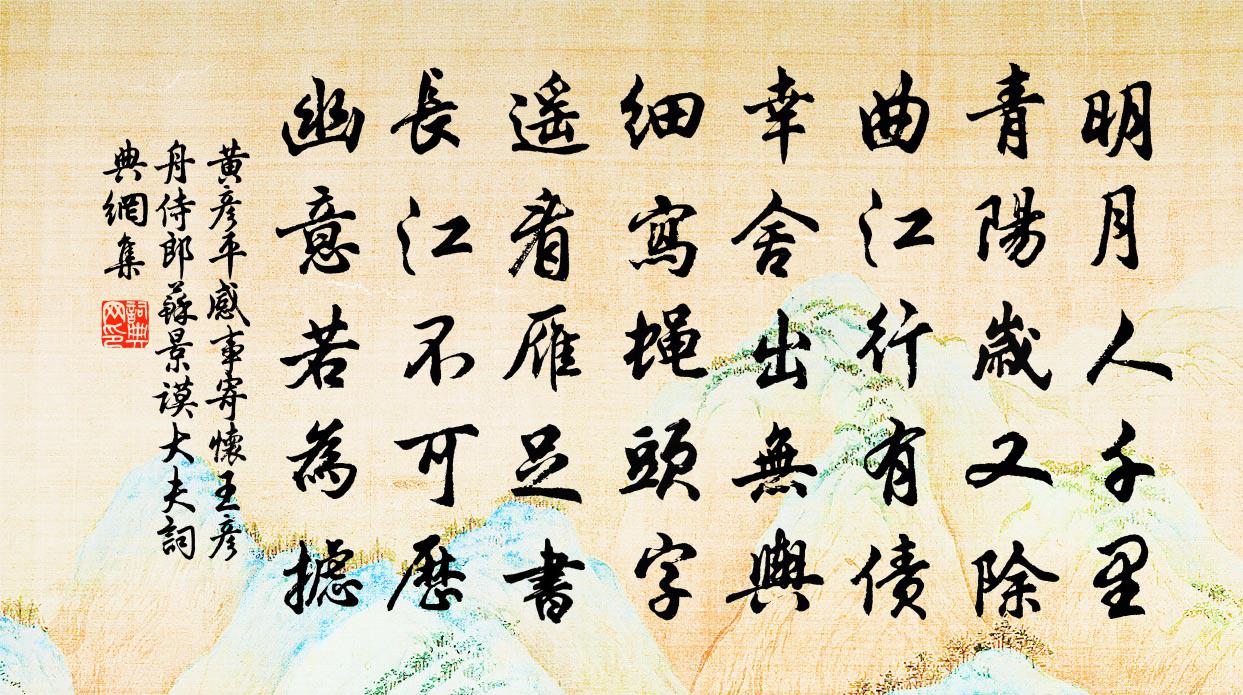 明月人千里
青陽歲又除
曲江行有債
幸舍出無輿
細寫蝇頭字
遥看雁足書
長江不可歷
幽意若為攄
黃彦平感事寄懷王彦
舟侍郎蘇景謨大夫詞
典網集
詞典